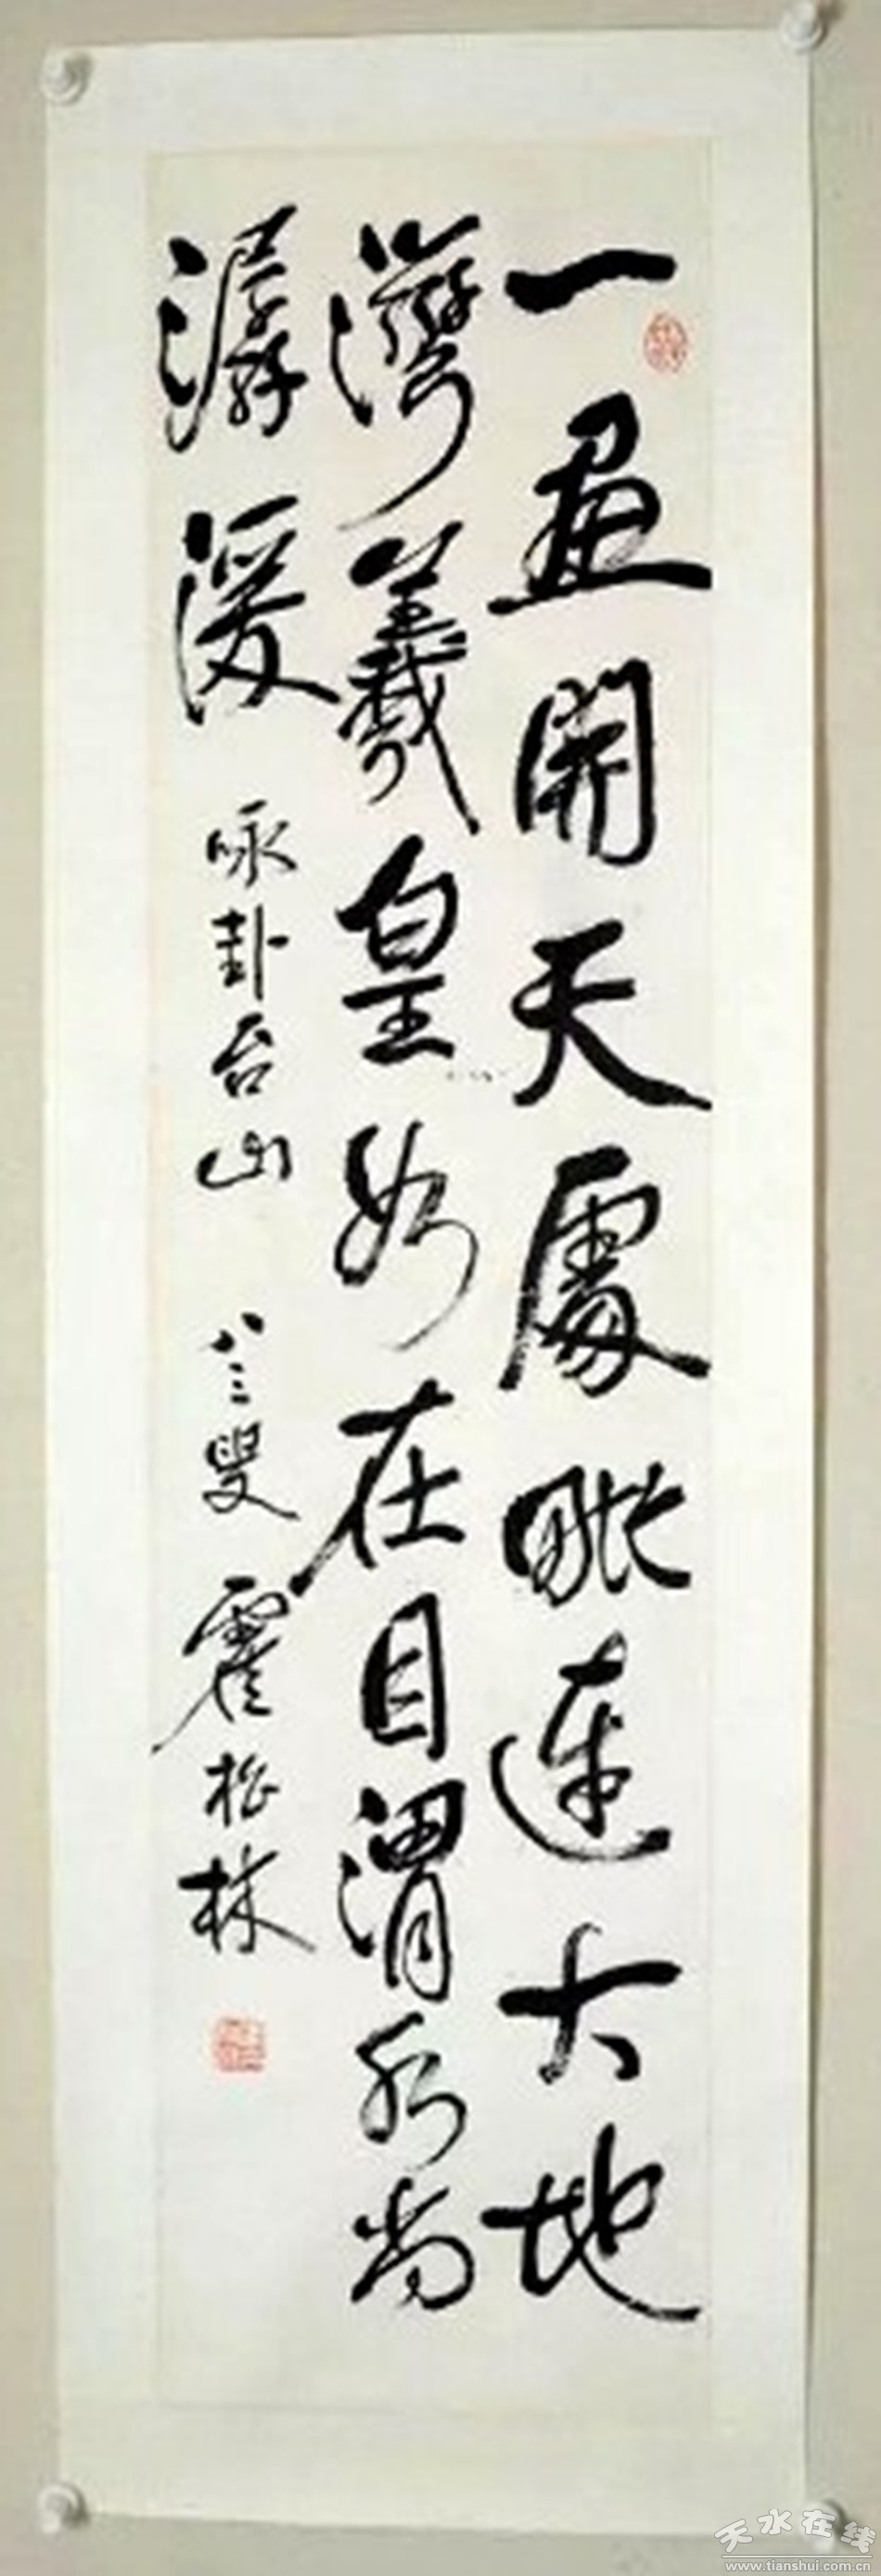 一畫開天處毗連大地
灣羲皇如在目渭水尚
潺湲
咏卦台山 八三叟 霍松林
天水在线
www.tianshui.com.cn